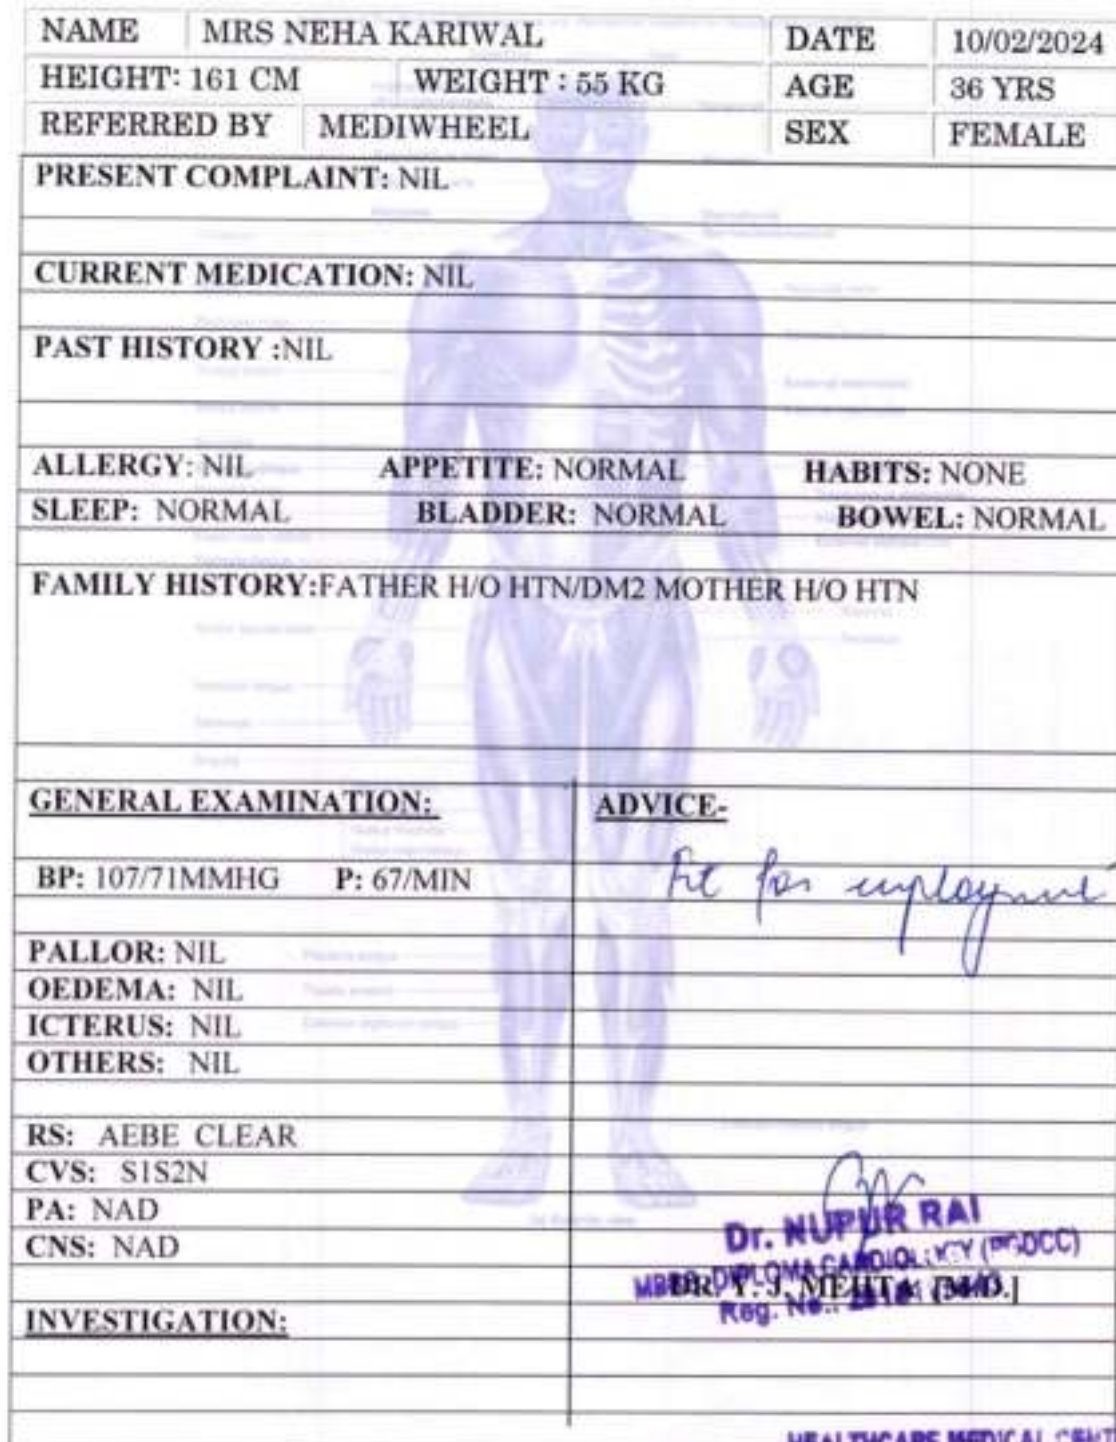 NAME MRS NEHA KARIWAL DATE 10/02/2024
HEIGHT: 161 CM WEIGHT : 55 KG AGE 36 YRS
REFERRED BY MEDIWHEEL SEX FEMALE
PRESENT COMPLAINT: NIL
CURRENT MEDICATION: NIL
PAST HISTORY :NIL
ALLERGY: NIL APPETITE: NORMAL HABITS: NONE
SLEEP: NORMAL BLADDER: NORMAL BOWEL: NORMAL
FAMILY HISTORY:FATHER H/O HTN/DM2 MOTHER H/O HTN
GENERAL EXAMINATION: ADVICE-
BP: 107/71MMHG P: 67/MIN Fit for employment
PALLOR: NIL
OEDEMA: NIL
ICTERUS: NIL
OTHERS: NIL
RS: AEBE CLEAR
CVS: S1S2N
PA: NAD
CNS: NAD
Dr. NUPUR RAI
DIPLOMA CARDIOLOGY
DR. Y. J. MEHTA [M.D.]
Reg. No.:
INVESTIGATION:
HEALTHCARE MEDICAL